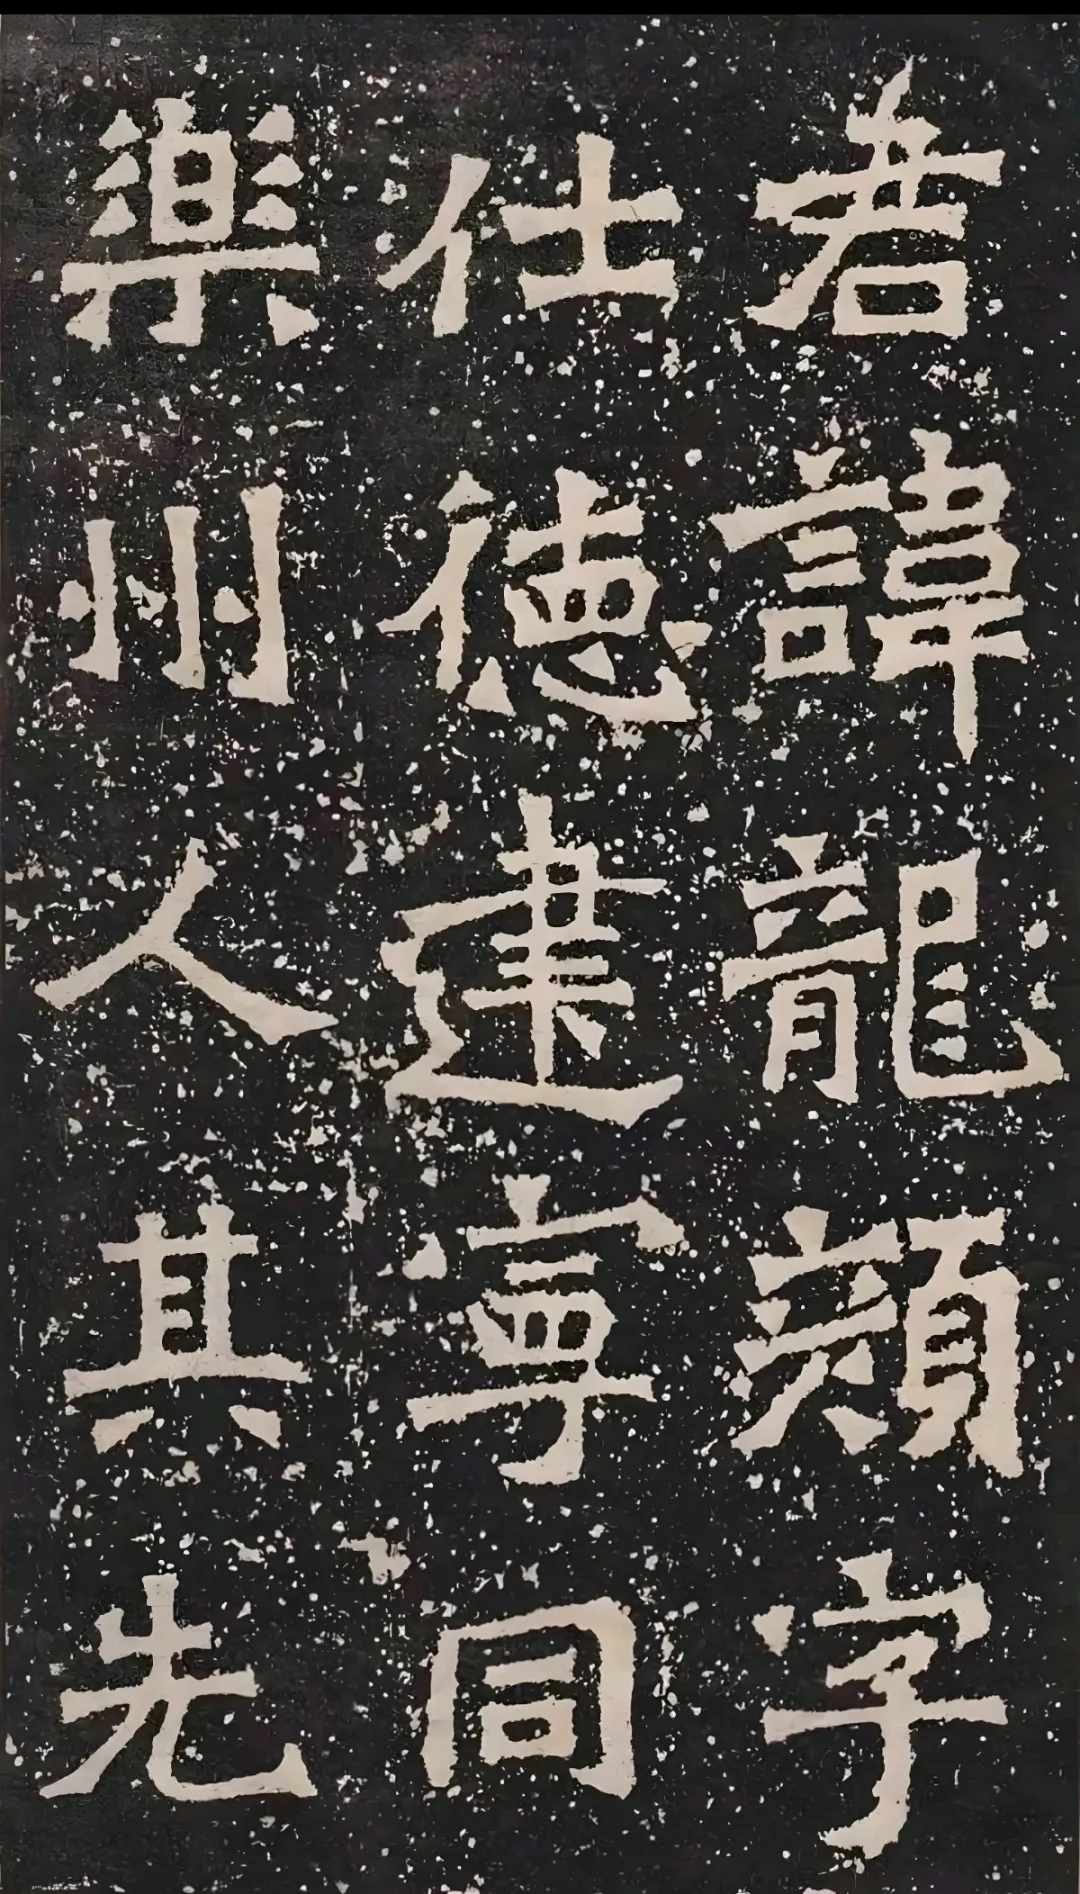 君諱龍顏字
仕德建寧同
樂州人其先